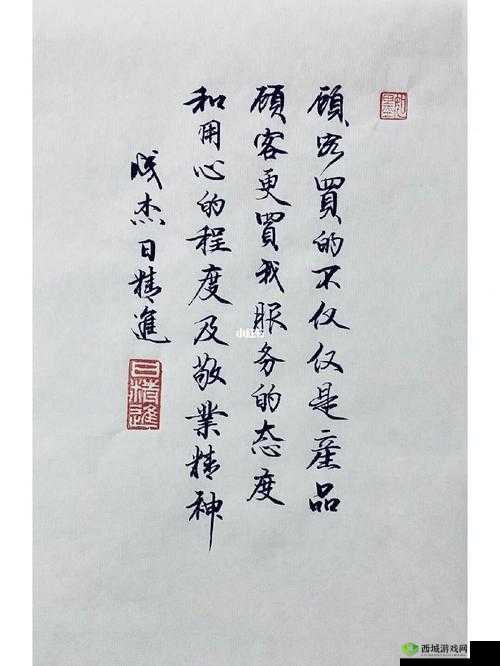 顾客買的不仅仅是產品
顾客更買我服务的态度
和用心的程度及敬業精神
成杰日精進
日精進
小红书
西城游戏网